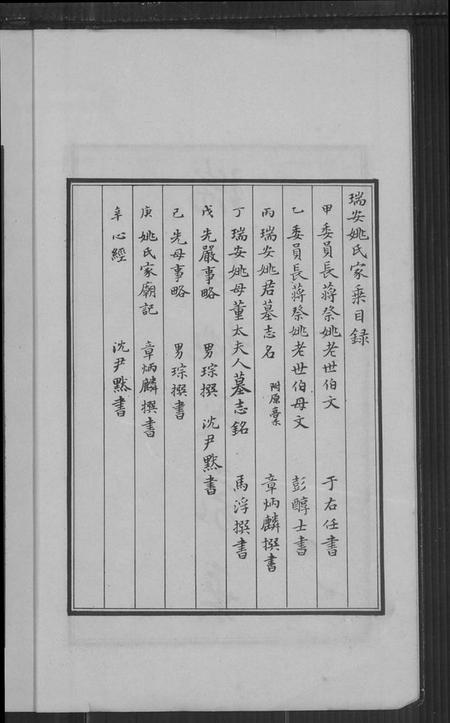 瑞安姚氏家乘目録
甲 委員長蔣祭姚老世伯文 于右任書
乙 委員長蔣祭姚老世伯母文 彭醇士書
丙 瑞安姚君墓志名 附原藳 章炳麟撰書
丁 瑞安姚母董太夫人墓志銘 馬浮撰書
戊 先嚴事略 男琮撰 沈尹默書
己 先母事略 男琮撰書
庚 姚氏家廟記 章炳麟撰書
辛 心經 沈尹默書